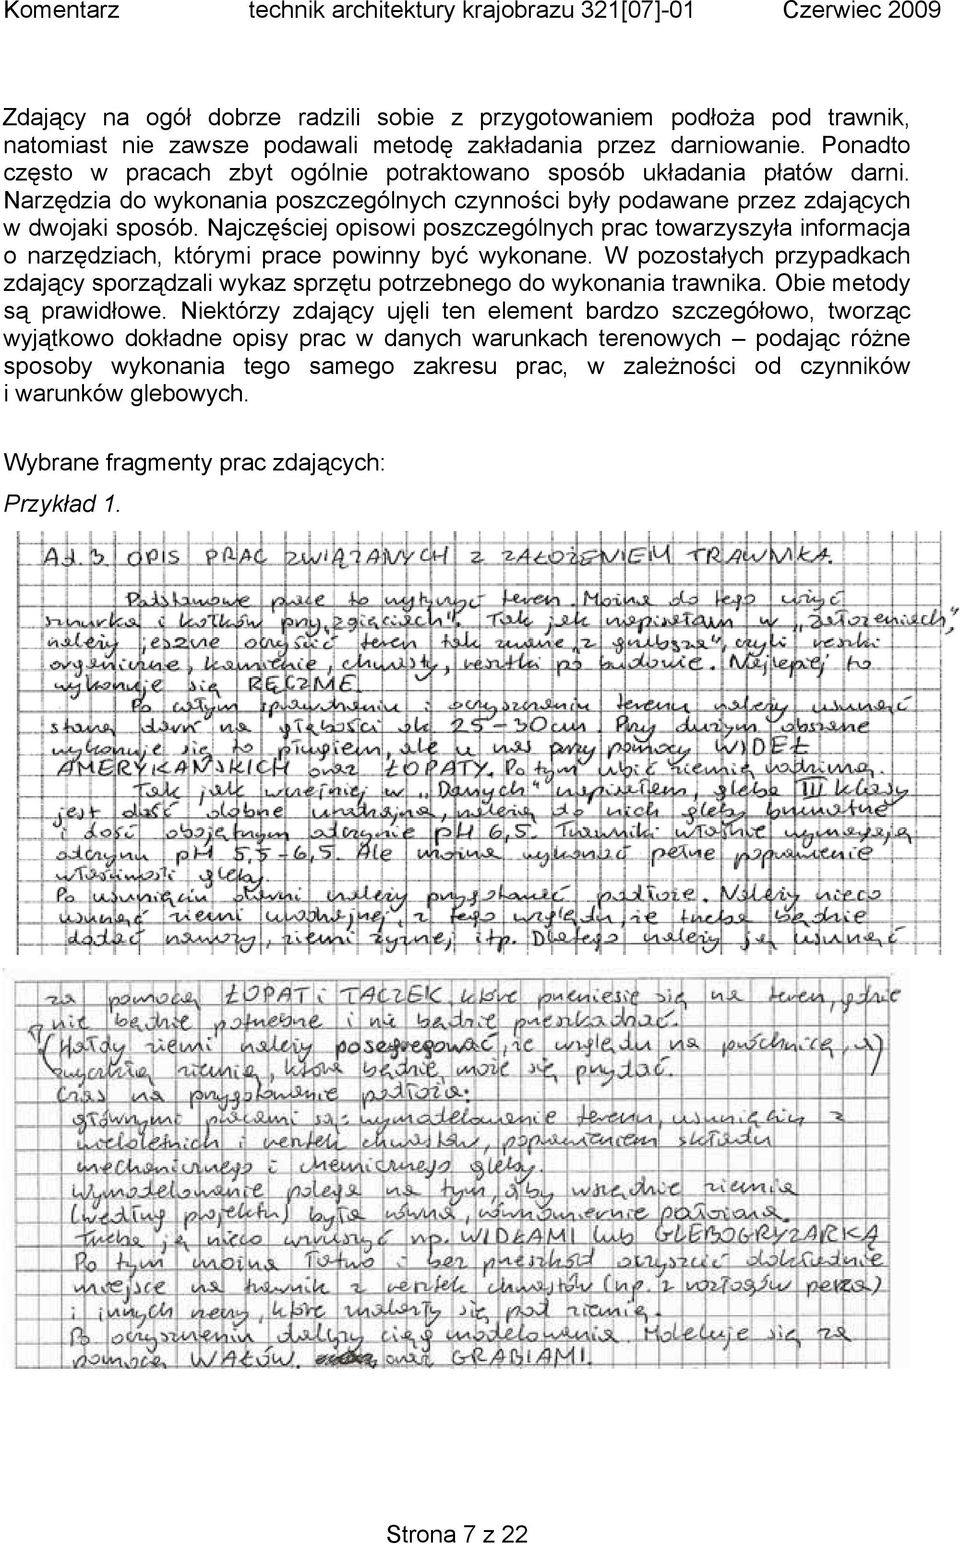 Komentarz technik architektury krajobrazu 321[07]-01 Czerwiec 2009
Zdający na ogół dobrze radzili sobie z przygotowaniem podłoża pod trawnik,
natomiast nie zawsze podawali metodę zakładania przez darniowanie. Ponadto
często w pracach zbyt ogólnie potraktowano sposób układania płatów darni.
Narzędzia do wykonania poszczególnych czynności były podawane przez zdających
w dwojaki sposób. Najczęściej opisowi poszczególnych prac towarzyszyła informacja
o narzędziach, którymi prace powinny być wykonane. W pozostałych przypadkach
zdający sporządzali wykaz sprzętu potrzebnego do wykonania trawnika. Obie metody
są prawidłowe. Niektórzy zdający ujęli ten element bardzo szczegółowo, tworząc
wyjątkowo dokładne opisy prac w danych warunkach terenowych – podając różne
sposoby wykonania tego samego zakresu prac, w zależności od czynników
i warunków glebowych.
Wybrane fragmenty prac zdających:
Przykład 1.
Ad. 3. OPIS PRAC ZWIĄZANYCH Z ZAŁOŻENIEM TRAWNIKA.
Podstawowe prace to wytyczyć teren. Można do tego użyć
sznurka i kołków przy zgięciach". Tak jak napisałam w „Założeniach",
należy jeszcze oczyścić teren tak zwane „z grubsza", czyli resztki
organiczne, kamienie, chwasty, resztki po budowie. Najlepiej to
wykonuje się RĘCZNIE.
Po całym sprawdzeniu i oczyszczeniu terenu należy usunąć
starą darń na głębości ok 25-30cm. Przy dużym obszarze
wykonuje się to pługiem, ale u nas przy pomocy WIDEŁ
AMERYKAŃSKICH oraz ŁOPATY. Po tym ubić ziemię
Tak jak wcześniej w „Danych" napisałem, gleba III klasy
jest dość dobrze urodzajna, należą do nich gleby brunatne
i dość obojętnym odczynie pH 6,5. Trawniki właśnie wymagają
odczynu pH 5,5-6,5. Ale można wykonać pełne poprawienie
właściwości gleby.
Po usunięciu darni należy przygotować podłoże. Należy nieco
usunąć ziemi urodzajnej, z tego względu, że trzeba będzie
dodać nawozy, ziemi żyznej itp. Dlatego należy ją usunąć
za pomocą ŁOPAT i TACZEK, które przeniesie się na teren, gdzie
nie będzie potrzebne i nie będzie przeszkadzać.
(Hałdy ziemi należy posegregować, ze względu na próchnicę, a)
ziemią, którą będzie, może się przydać.
Czas na przygotowanie podłoża:
głównymi pracami są: wymodelowanie terenu, usunięciu z
wieloletnich i resztek chwastów, poprawieniem składu
mechanicznego i chemicznego gleby.
Wymodelowanie polega na tym, aby wszędzie ziemia
(według projektu) była równa, równomiernie położona.
Trzeba ją nieco wzruszyć np. WIDŁAMI lub GLEBOGRYZARKĄ
Po tym można łatwo i bez przeszkód oczyścić dokładnie
miejsce na trawnik z resztek chwastów (np. z rozłogów perzu)
i innych rzeczy, które znalazły się pod ziemią.
Po oczyszczeniu dalszy ciąg modelowania. Modeluje się za
pomocą WAŁÓW, oraz GRABIAMI.
Strona 7 z 22